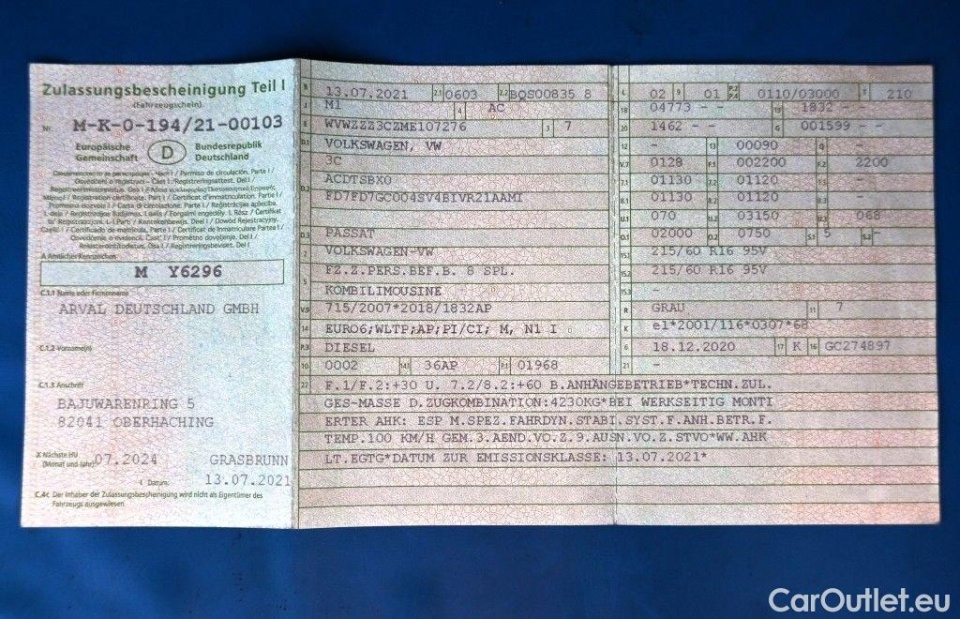 Zulassungsbescheinigung Teil I
(Fahrzeugschein)
Nr. M-K-0-194/21-00103
Europäische Gemeinschaft D Bundesrepublik Deutschland
A Amtliches Kennzeichen
M Y6296
C.1.1 Name oder Firmenname
ARVAL DEUTSCHLAND GMBH
C.1.2 Vorname(n)
C.1.3 Anschrift
BAJUWARENRING 5
82041 OBERHACHING
X Nächste HU
(Monat und Jahr) 07.2024 GRASBRUNN
I Datum: 13.07.2021
C.4c Der Inhaber der Zulassungsbescheinigung wird nicht als Eigentümer des
Fahrzeugs ausgewiesen.
B 13.07.2021 2.1 0603 2.2 BQS00835 8
J M1 4 AC
E WVWZZZ3CZME107276 3 7
D.1 VOLKSWAGEN, VW
3C
D.2 ACDTSBX0
FD7FD7GC004SV4BIVR21AAMI
D.3 PASSAT
2 VOLKSWAGEN-VW
5 FZ.Z.PERS.BEF.B. 8 SPL.
KOMBILIMOUSINE
V.9 715/2007*2018/1832AP
14 EURO6;WLTP;AP;PI/CI; M, N1 I
P.3 DIESEL
10 0002 14.1 36AP P.1 01968
L 02 9 01 P.2 P.4 0110/03000 T 210
18 04773 - - 19 1832 -
20 1462 - - G 001599 - -
12 - 13 00090 Q -
V.7 0128 F.1 002200 F.2 2200
7.1 01130 7.2 01120 7.3 -
8.1 01130 8.2 01120 8.3 -
U.1 070 U.2 03150 U.3 068
O.1 02000 O.2 0750 S.1 5 S.2 -
15.1 215/60 R16 95V
15.2 215/60 R16 95V
15.3 -
R GRAU 11 7
K e1*2001/116*0307*68
6 18.12.2020 17 K 16 GC274897
21 -
22 F.1/F.2:+30 U. 7.2/8.2:+60 B.ANHÄNGEBETRIEB*TECHN.ZUL.
GES-MASSE D.ZUGKOMBINATION:4230KG*BEI WERKSEITIG MONTI
ERTER AHK: ESP M.SPEZ.FAHRDYN.STABI.SYST.F.ANH.BETR.F.
TEMP.100 KM/H GEM.3.AEND.VO.Z.9.AUSN.VO.Z.STVO*WW.AHK
LT.EGTG*DATUM ZUR EMISSIONSKLASSE: 13.07.2021*
CarOutlet.eu